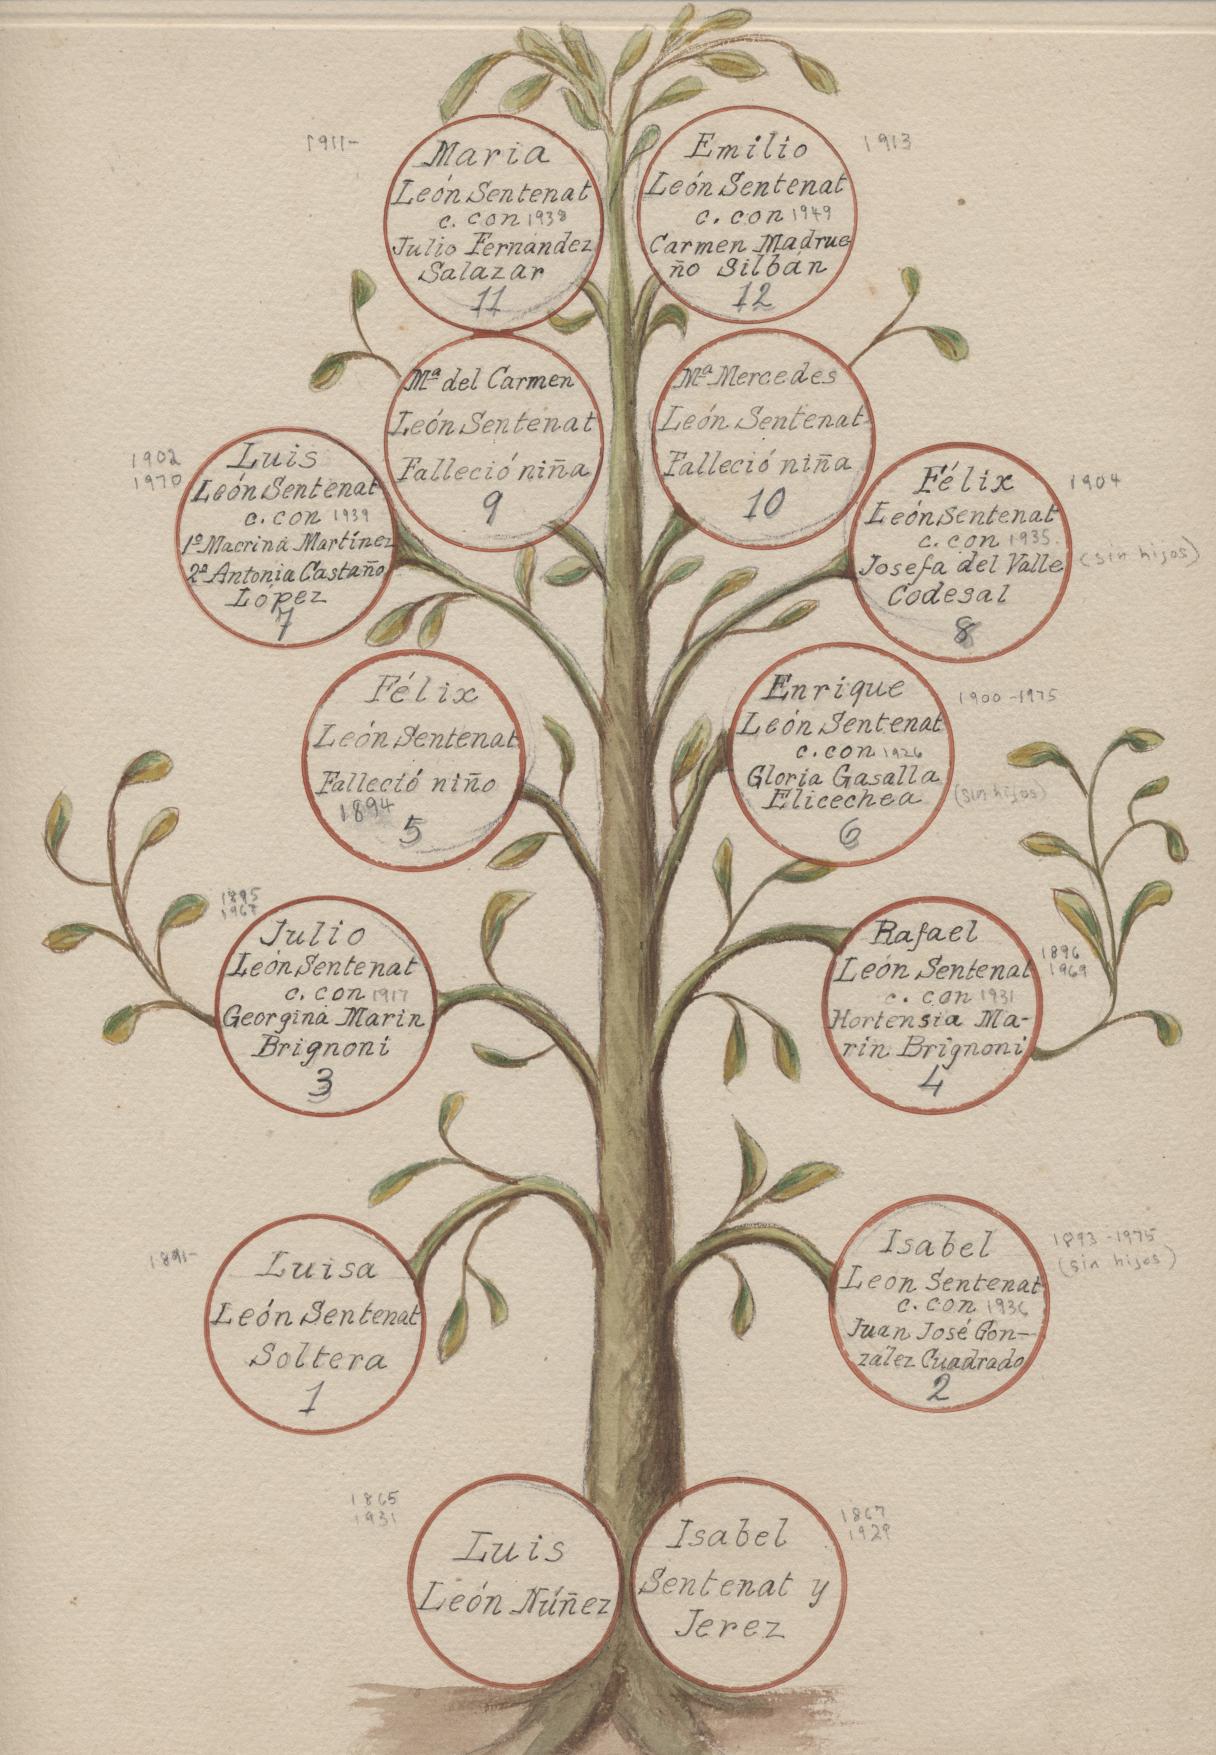 1911-
Maria
León Sentenat
c. con 1938
Julio Fernández
Salazar
11
Emilio
León Sentenat
c. con 1949
Carmen Madrue
ño Silbán
12
1913
Mª del Carmen
León Sentenat
Falleció niña
9
Mª Mercedes
León Sentenat
Falleció niña
10
1902
1970
Luis
León Sentenat
c. con 1939
1º Macrina Martínez
2ª Antonia Castaño
López
7
Félix
León Sentenat
c. con 1935.
Josefa del Valle
Codesal
8
1904
(sin hijos)
Félix
León Sentenat
Falleció niño
1894
5
Enrique
León Sentenat
c. con 1926
Gloria Gasalla
Elicechea
6
1900-1975
(sin hijos)
1895
1967
Julio
León Sentenat
c. con 1917
Georgina Marin
Brignoni
3
Rafael
León Sentenat
c. con 1931
Hortensia Ma-
rin Brignoni
4
1896
1969
1891-
Luisa
León Sentenat
Soltera
1
Isabel
Leon Sentenat
c. con 1936
Juan José Gon-
zález Cuadrado
2
1893-1975
(sin hijos)
1865
1931
Luis
León Núñez
Isabel
Sentenat y
Jerez
1867
1929